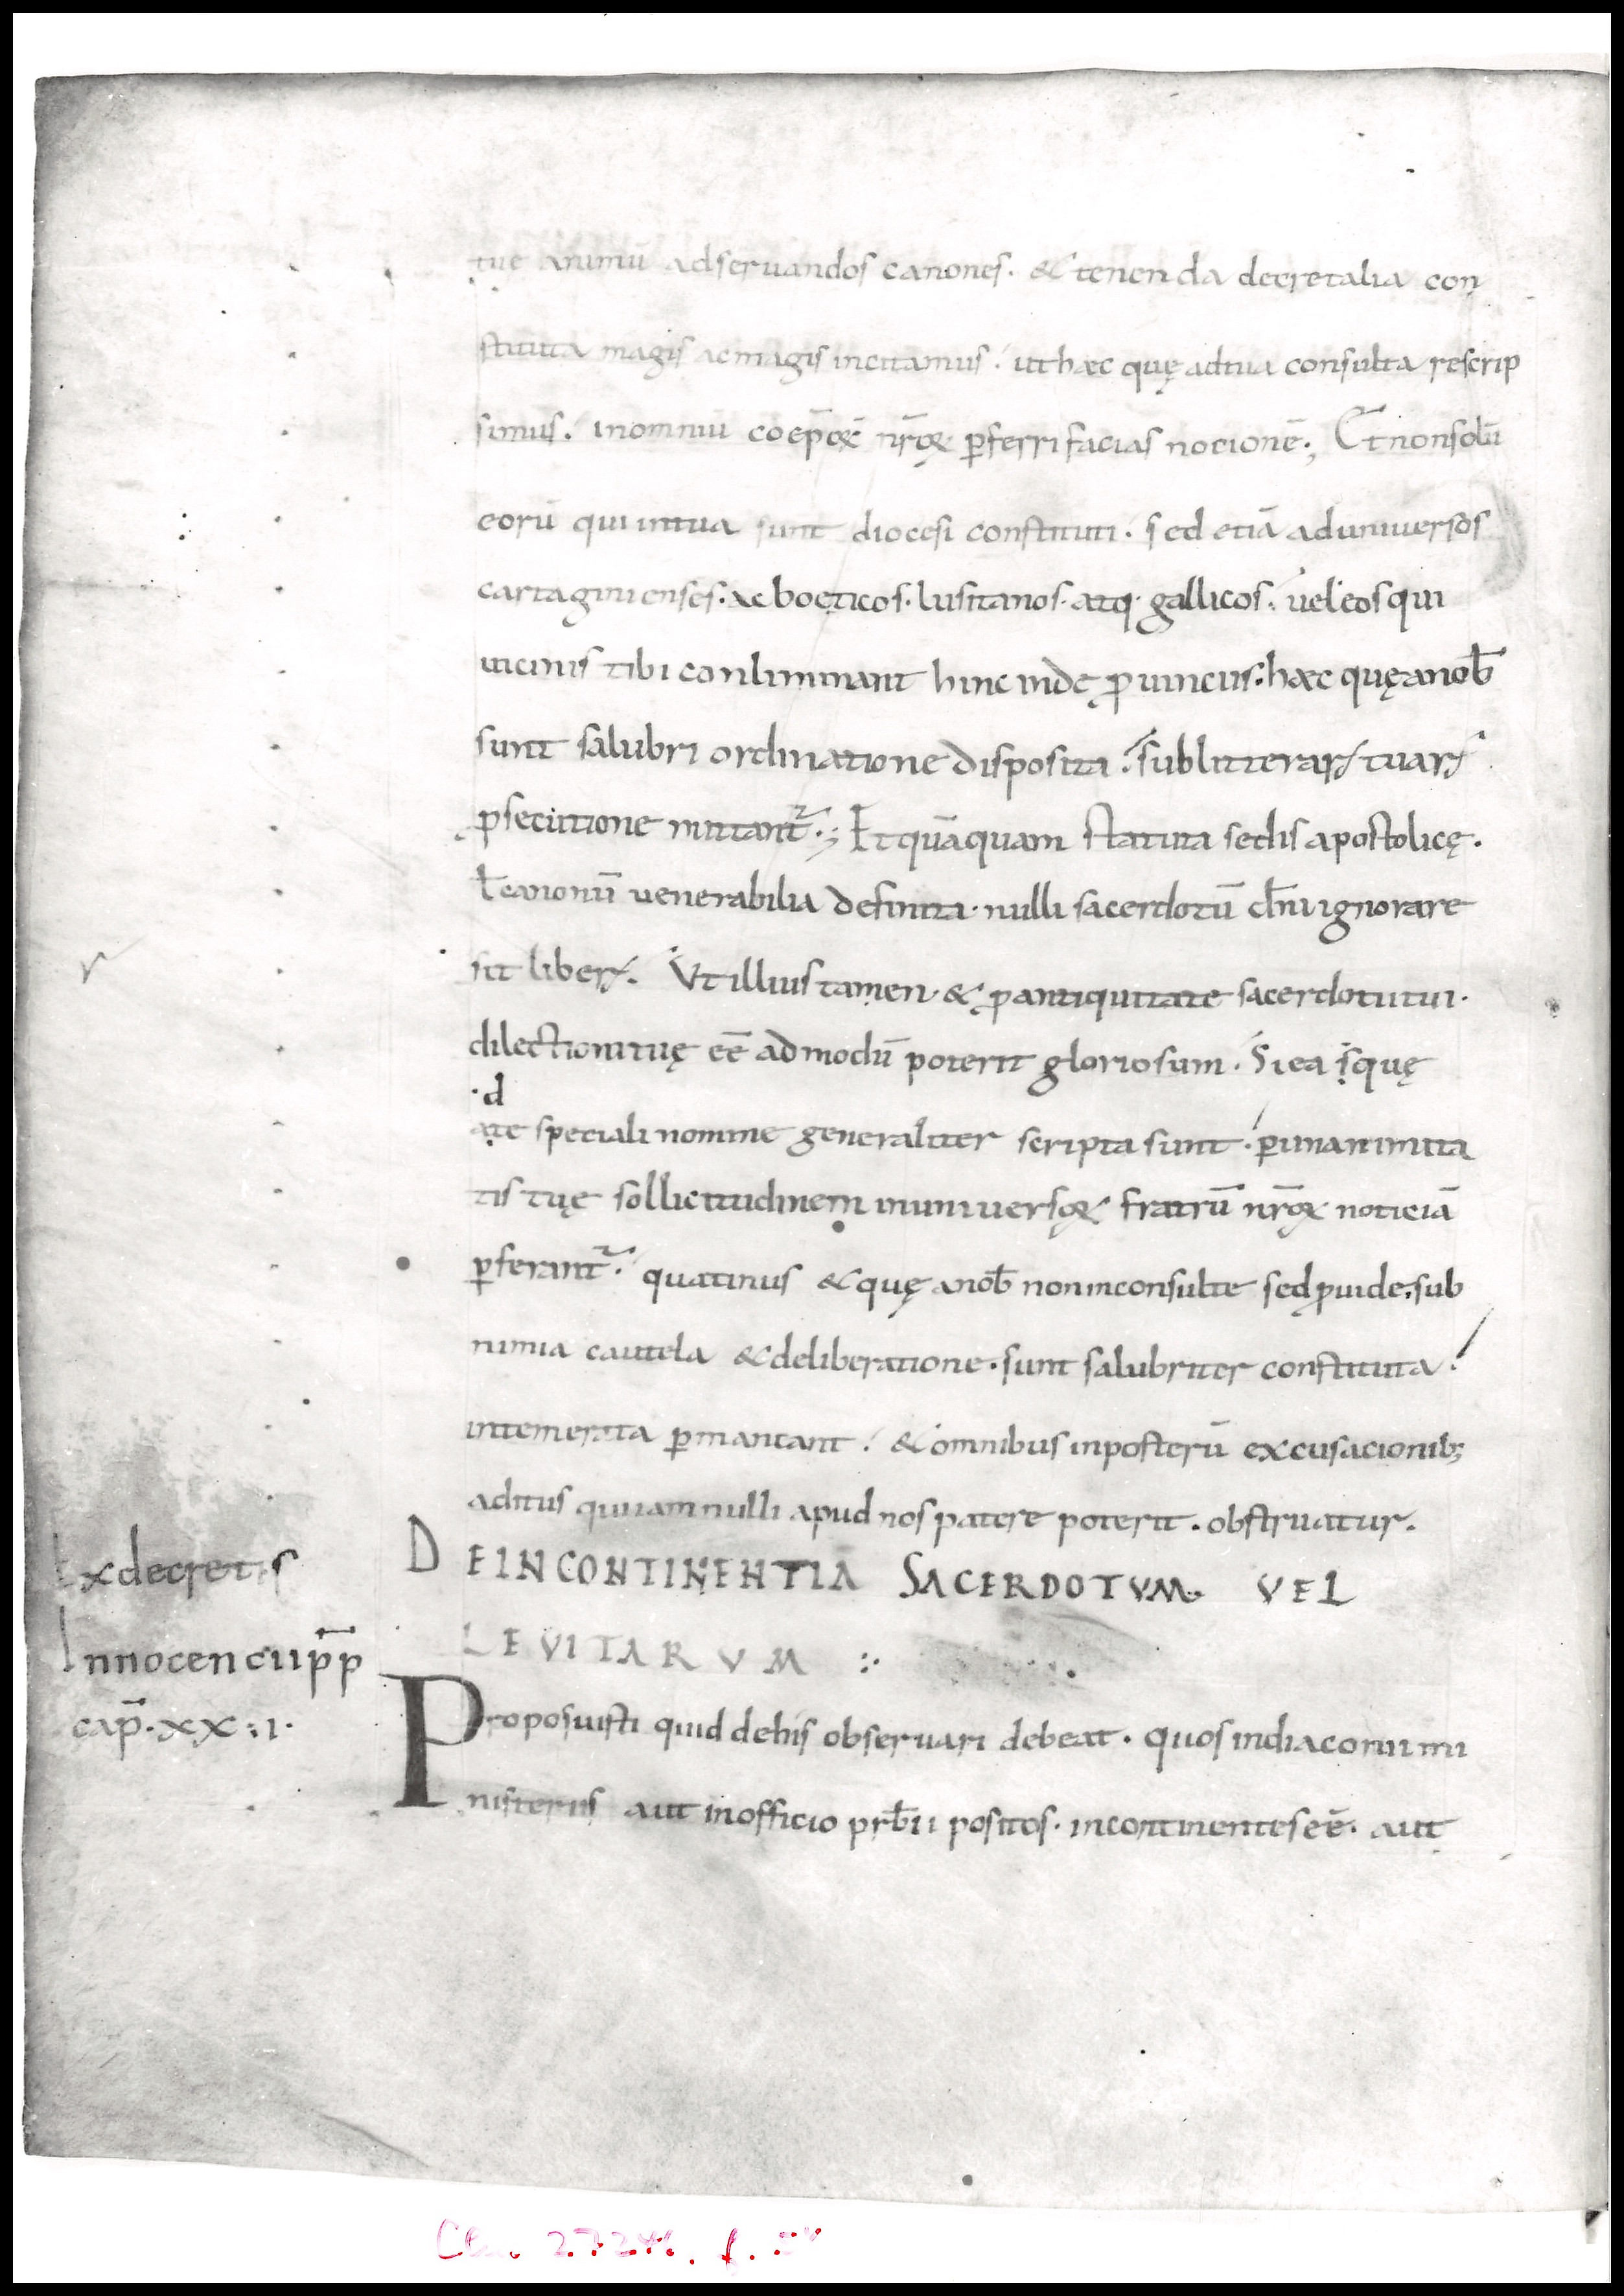 tuę animū adseruandos canones· & tenenda decretalia con
stituta magis ac magis incitamus· ut haec quę ad tua consulta rescrip
simus· in omniū coep̄oꝝ nr̄oꝝ ꝑferri facias nocionē·; Et non solū
eorū qui in tua sunt diocesi constituti· sed etiā ad uniuersos
cartaginienses· ac boęticos· lusitanos· atq· gallicos· uel eos qui
uicinis tibi conliminant hinc indę ꝓuinciis· haec quę a nob̄
sunt salubri ordinatione disposita· sub litterarꝝ tuarꝝ
ꝓsecutione mittant᷑·; Et quāquam statuta sedis apostolicę·
ł canonū uenerabilia definita· nulli sacerdotū dn̄i ignorare
sit liberꝝ. Vt illius tamen· & ꝓ antiquitate sacerdotii tui·
dilectioni tuę eē admodū poterit gloriosum· Si ea ṣquę
·d
ate speciali nomine generaliter scripta sunt· ꝑ unanimita
tis tuę sollicitudinem in uniuersoꝝ fratrū nr̄oꝝ noticiā
ꝑferant᷑· quatinus & quę a nob̄ non inconsulte sed ꝓuide· sub
nimia cautela & deliberatione· sunt salubriter constituta·
intemerata ꝑmaneant· & omnibus in posterū excusacionib;
aditus qui iam nulli apud nos patere poterit· obstruatur.
DE INCONTINENTIA SACERDOTVM· VEL
LEVITARVM :·
Ex decretis
Innocencii pp̄
cap̄· xx·:i·
Proposuisti quid de his obseruari debeat· quos in diaconii mi
nisteriis aut in officio prb̄ii positos· incontinentes eē· aut
Clm 27246, f.